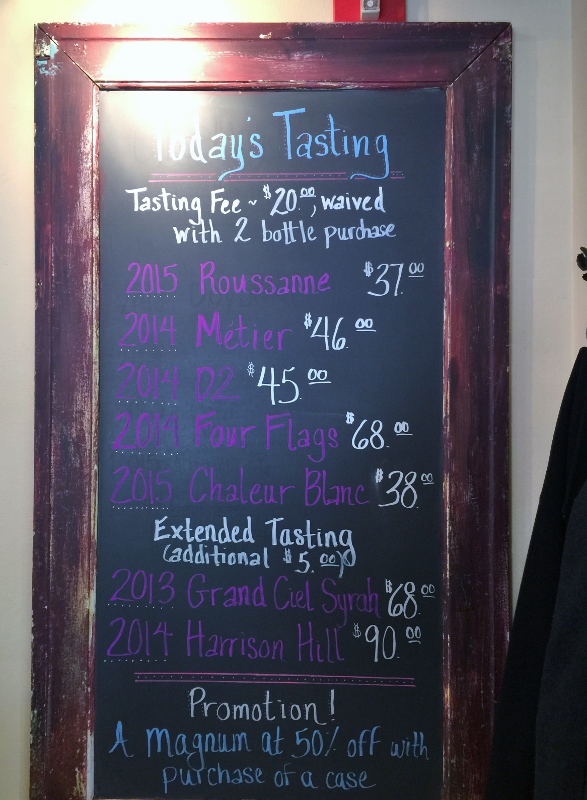 Today's Tasting
Tasting Fee ~ $20.00, waived
with 2 bottle purchase
2015 Roussanne $37.00
2014 Métier $46.00
2014 D2 $45.00
2014 Four Flags $68.00
2015 Chaleur Blanc $38.00
Extended Tasting
(additional $5.00)
2013 Grand Ciel Syrah $68.00
2014 Harrison Hill $90.00
Promotion!
A Magnum at 50% off with
purchase of a case